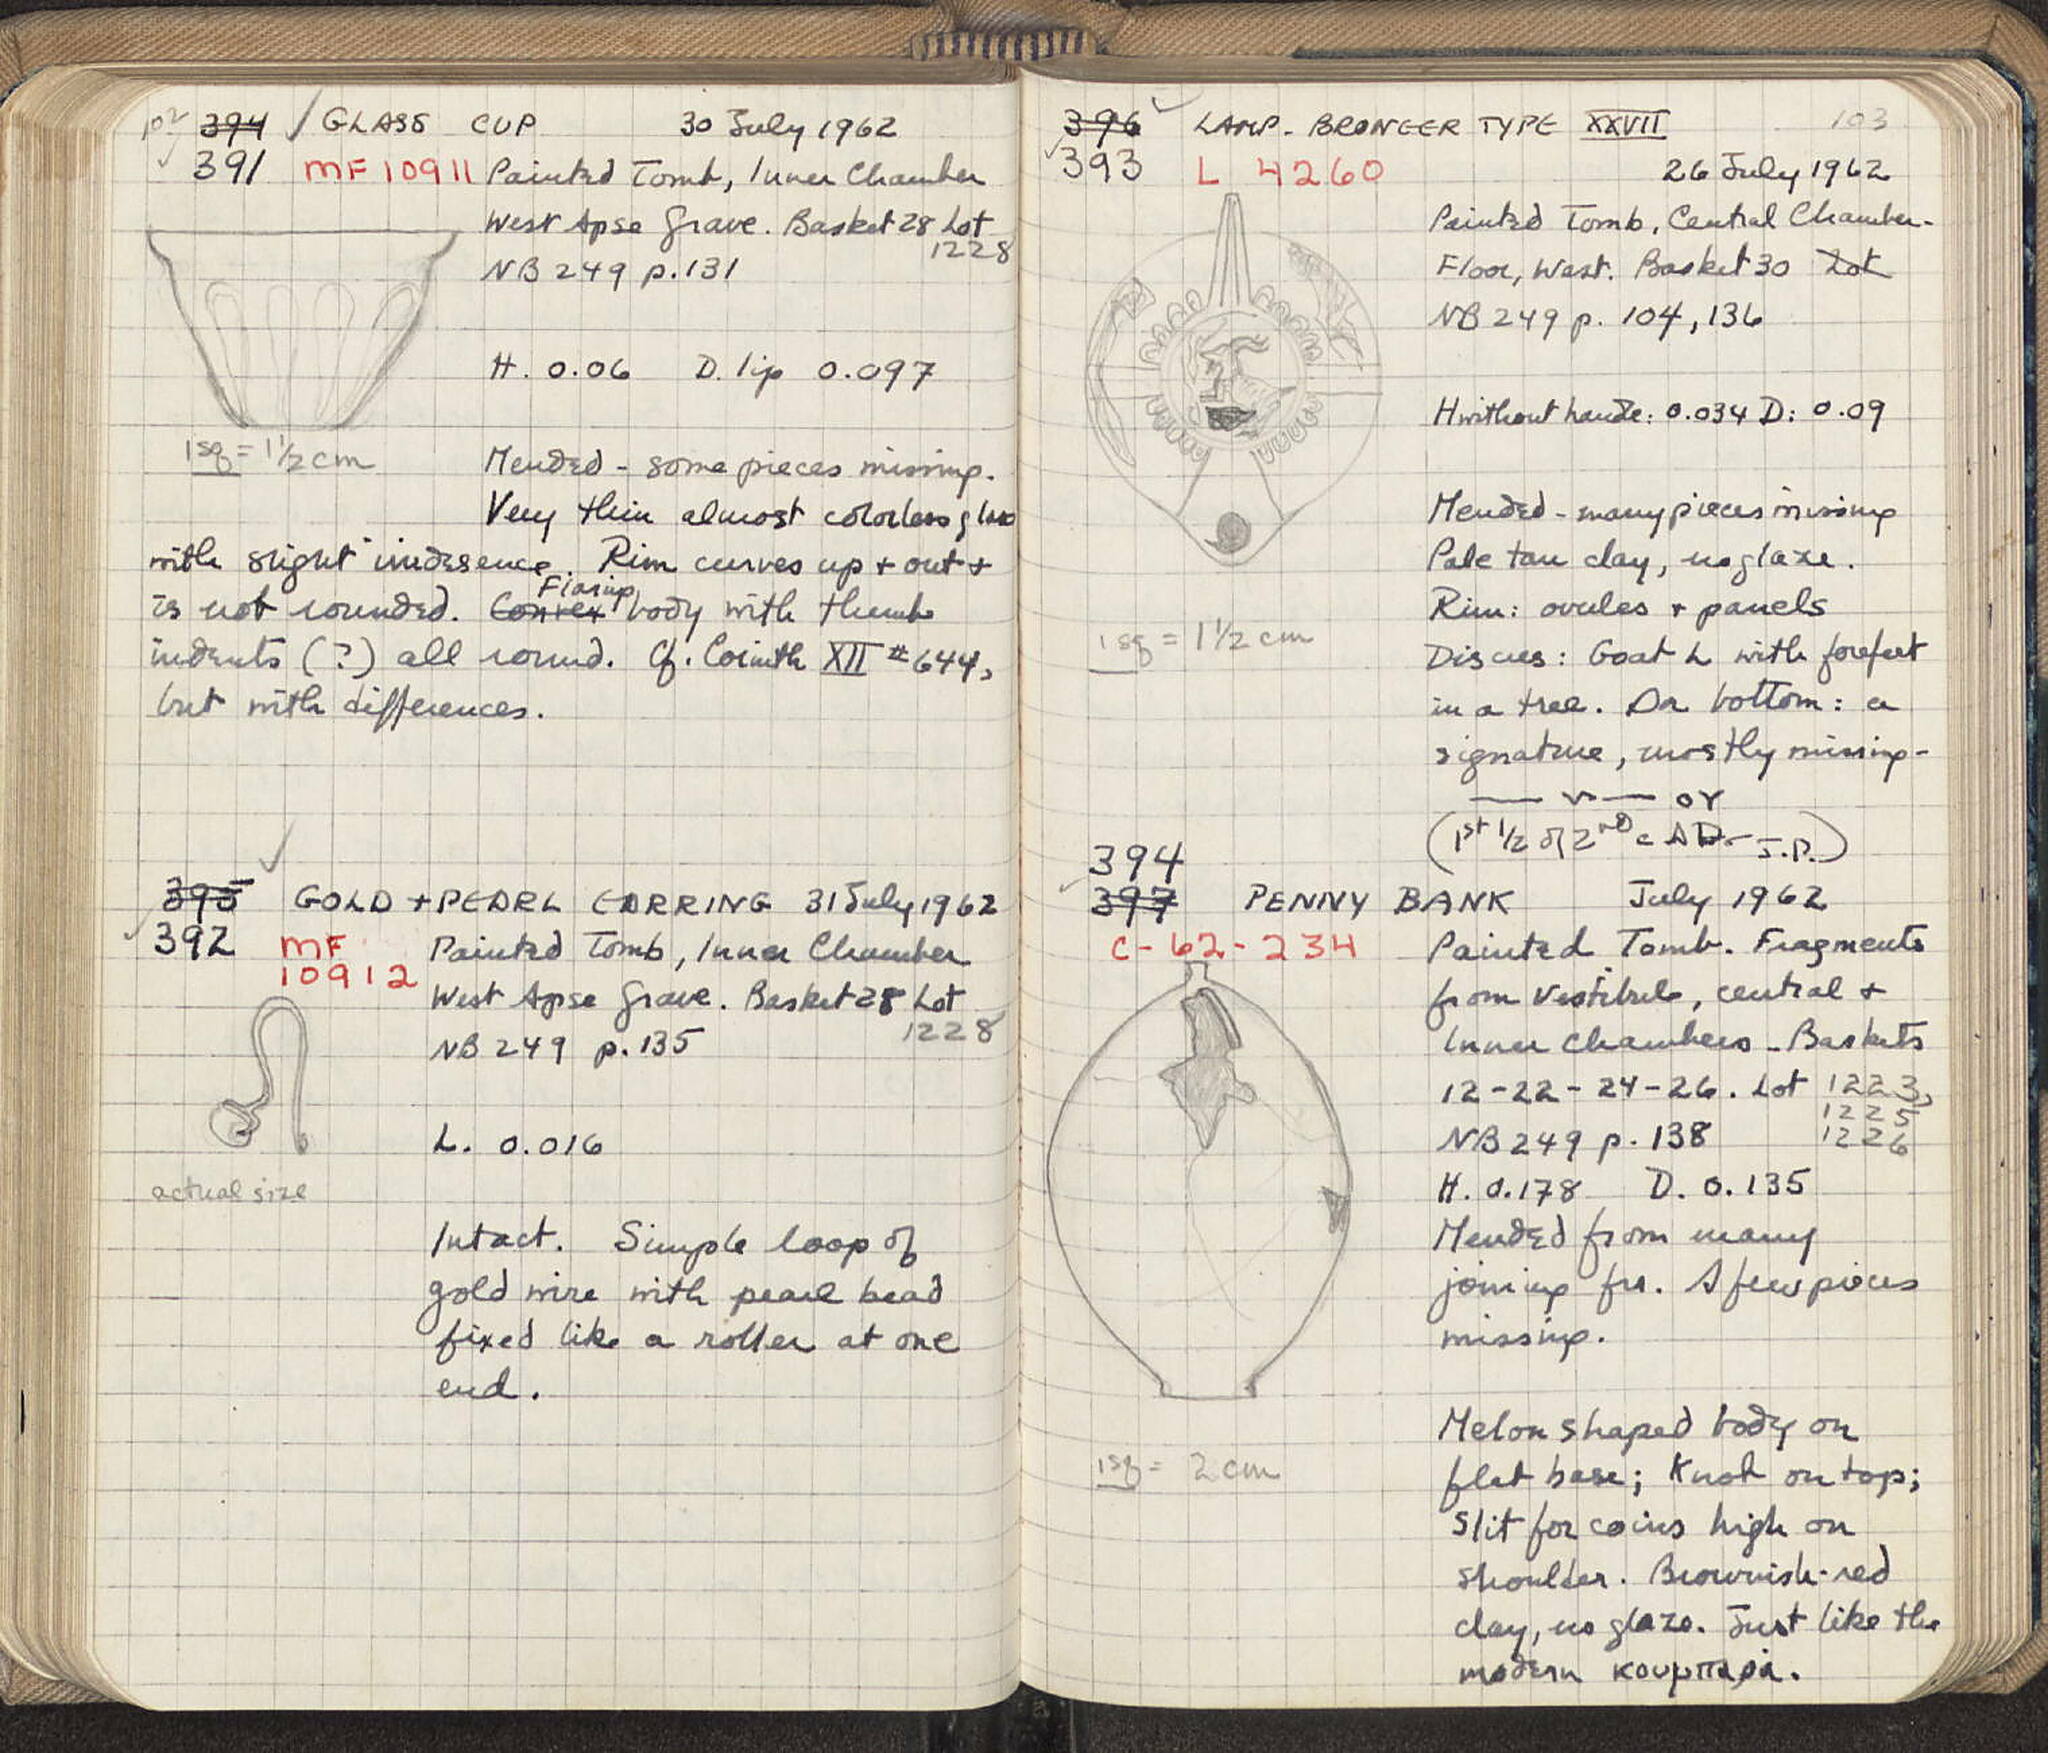 102 394 ✓ GLASS CUP 30 July 1962
391 MF 10911 Painted Tomb, Inner Chamber
West Apse Grave. Basket 28 Lot
1228
NB 249 p. 131
H. 0.06 D. lip 0.097
1 sq = 1 1/2 cm
Mended - some pieces missing.
Very thin almost colorless glass
with slight iridesence. Rim curves up + out +
Flaring
is not rounded. Convex body with thumb
indents (?) all round. Cf. Corinth XII #644,
but with differences.
395 GOLD + PEARL EARRING 31 July 1962
392 MF
10912
Painted Tomb, Inner Chamber
West Apse Grave. Basket 28 Lot
1228
NB 249 p. 135
L. 0.016
actual size
Intact. Simple loop of
gold wire with pearl bead
fixed like a roller at one
end.
396 LAMP - BRONEER TYPE XXVII 103
393 L 4260 26 July 1962
Painted Tomb, Central Chamber -
Floor, West. Basket 30 Lot
NB 249 p. 104, 136
H without handle: 0.034 D: 0.09
Mended - many pieces missing
Pale tan clay, no glaze.
Rim: ovules + panels
1 sq = 1 1/2 cm
Discus: Goat L with forefeet
in a tree. On bottom: a
signature, mostly missing -
— ν — ογ
(1st 1/2 of 2nd c AD - J.P.)
394
397 PENNY BANK July 1962
C-62-234 Painted Tomb. Fragments
from Vestibule, central +
Inner Chambers - Baskets
12-22-24-26. Lot 1223,
1225
1226
NB 249 p. 138
H. 0.178 D. 0.135
Mended from many
joining frs. A few pieces
missing.
Melon shaped body on
1 sq = 2 cm
flat base; Knob on top;
slit for coins high on
shoulder. Brownish-red
clay, no glaze. Just like the
modern κουμπαρά.